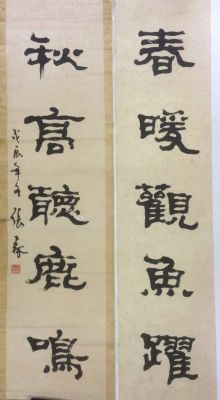 春暖觀魚躍
秋高聽鹿鳴
戊辰年冬 張森